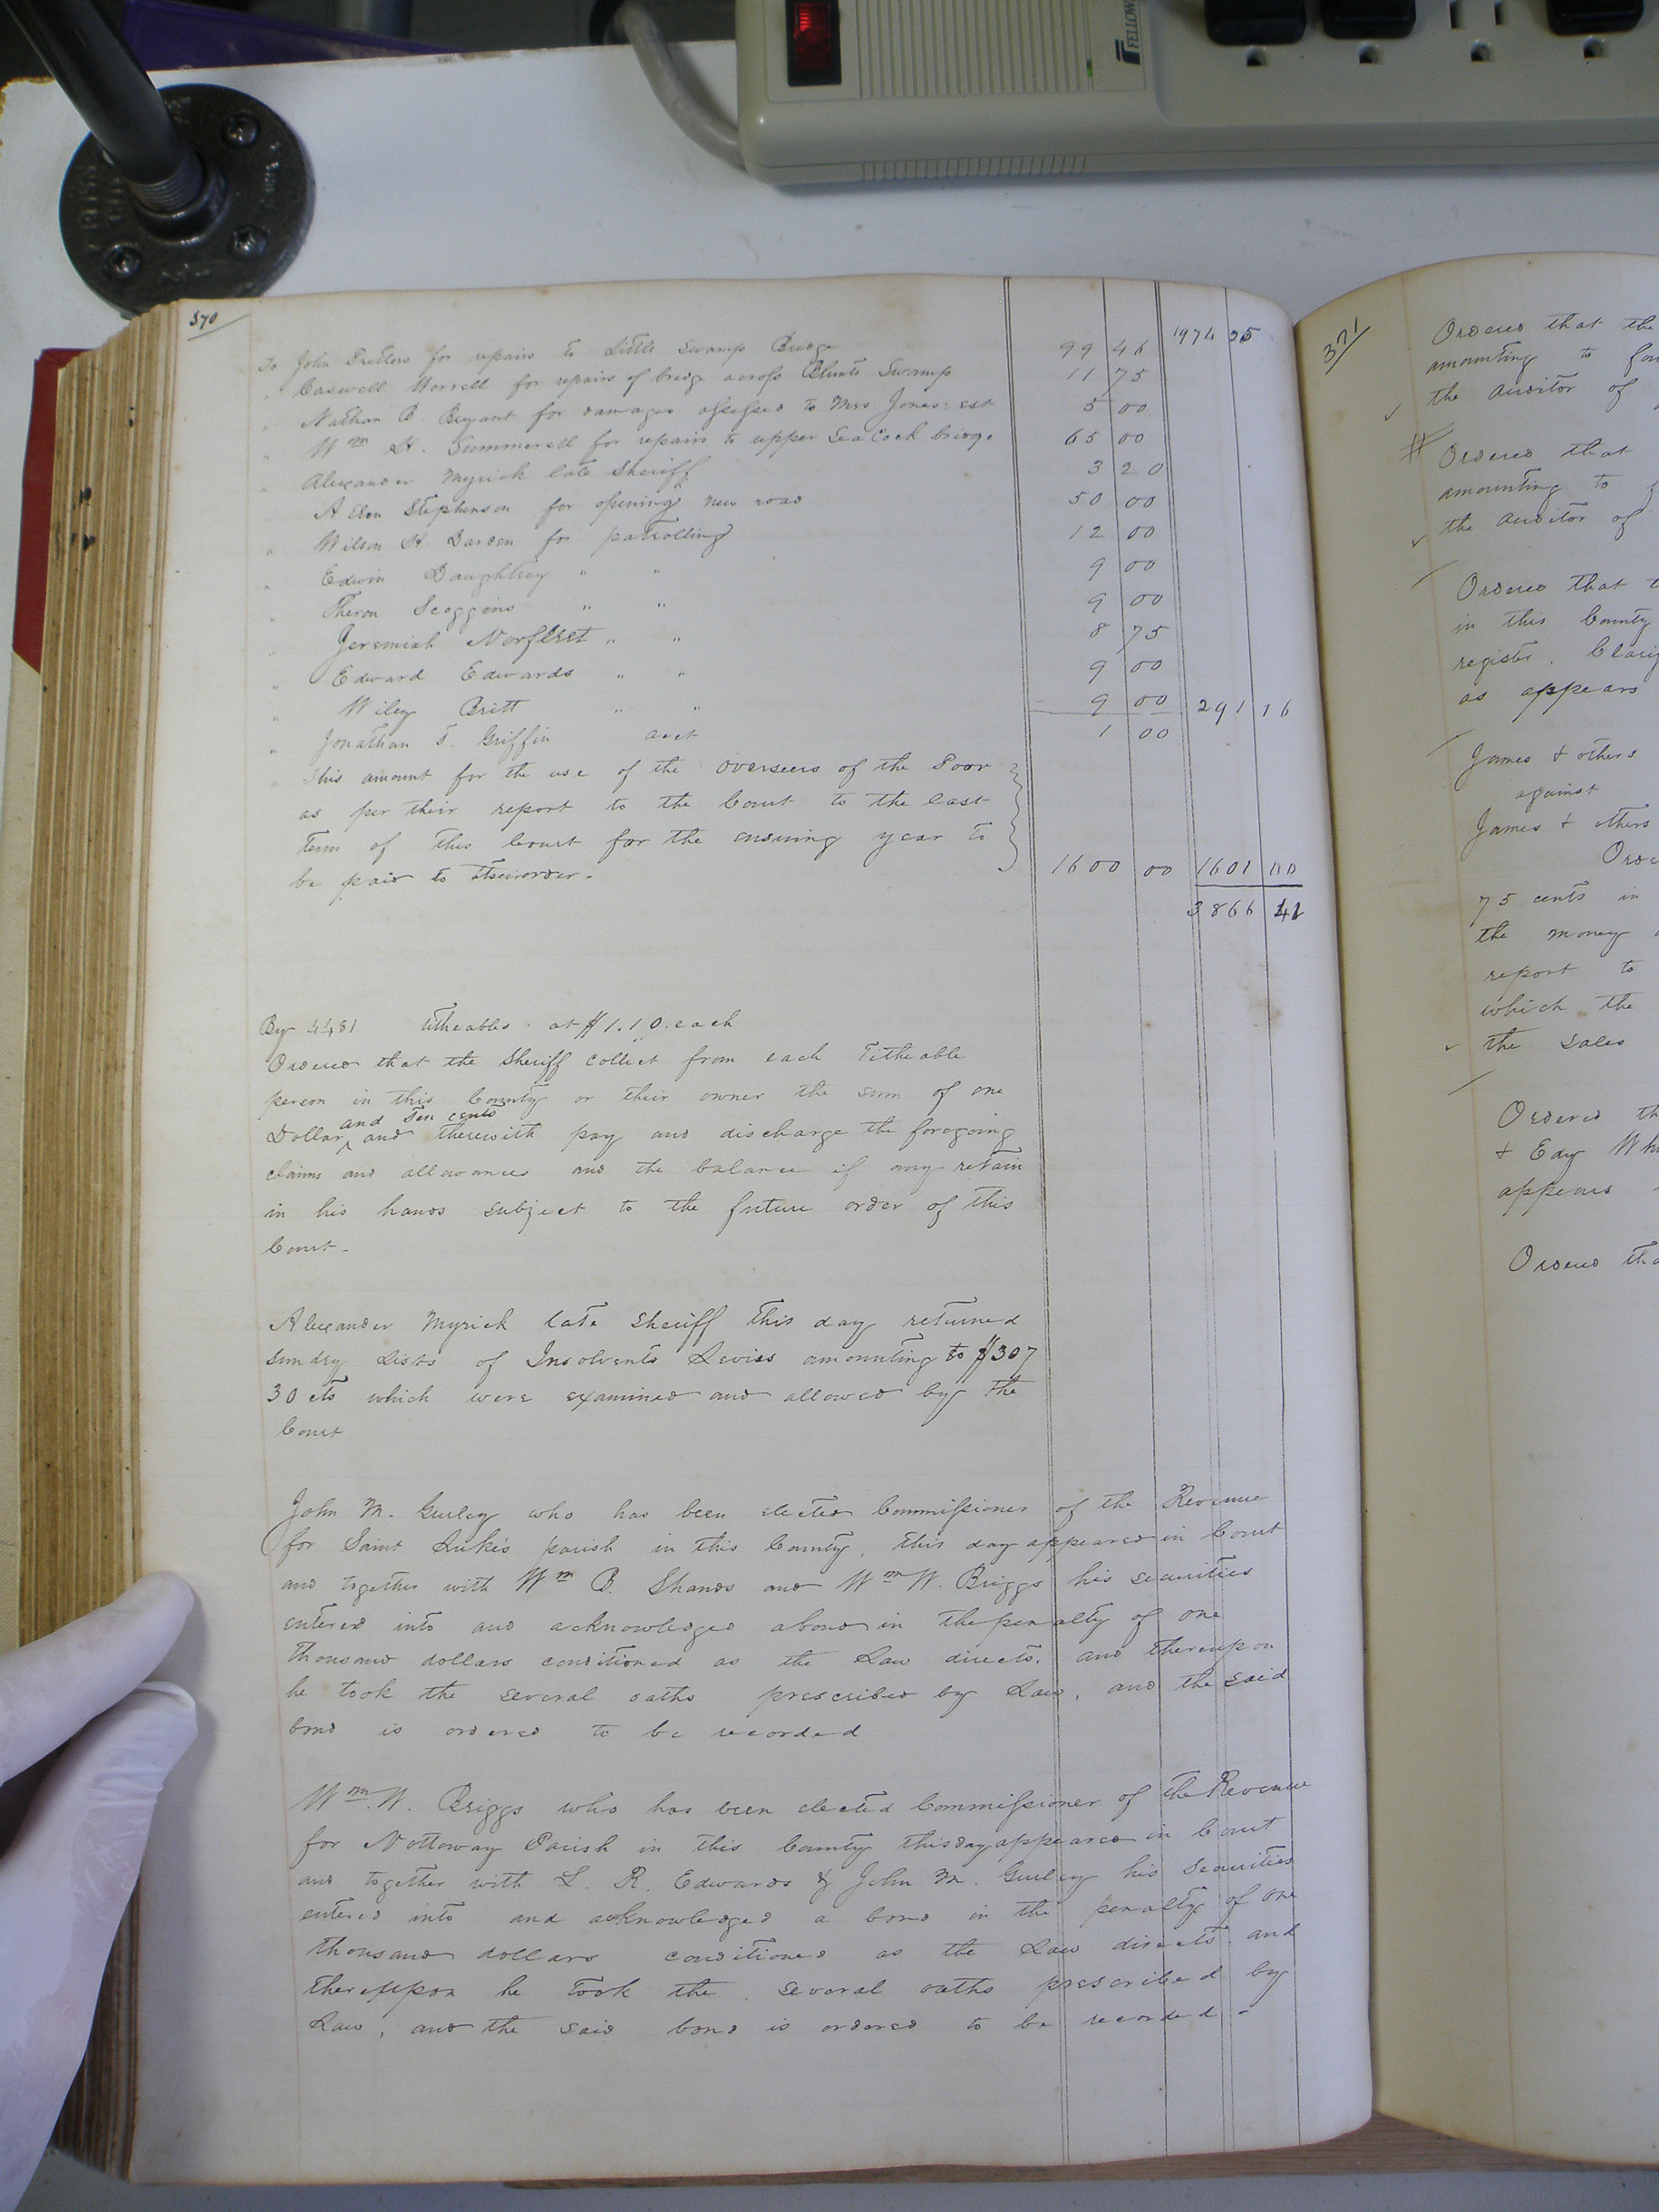 FELLOW
370
1974 25
To John Dretters for repairs to Little Swamp Bridge 99 46
" Caswell Worrell for repairs of bridge across Blunts Swamp 11 75
" Nathan B. Bryant for damages assessed to Mrs. Jones: est 5 00
" Wm H. Summerell for repairs to upper Sea Cock bridge 65 00
" Alexander Myrick late Sheriff 3 20
Allen Stephenson for opening new road 50 00
" Wilson H. Darden for patrolling 12 00
" Edwin Daughtrey " " 9 00
" Theron Scoggins " " 9 00
" Jeremiah Norfleet " " 8 75
" Edward Edwards " " 9 00
" Wiley Britt " " 9 00 291 16
" Jonathan T. Griffin acct 1 00
This amount for the use of the Overseers of the Poor
as per their report to the Court to the last
Term of this Court for the ensuing year to
be paid to their order. 1600 00 1601 00
3866 41
By 4481 titheables. at $1.10. each
Ordered that the Sheriff collect from each Titheable
person in this County or their owner the sum of one
and Ten cents
Dollar ^ and therewith pay and discharge the foregoing
claims and allowances and the balance if any retain
in his hands subject to the future order of this
Court.
Alexander Myrick late Sheriff this day returned
sundry Lists of Insolvents Levies amounting to $307
30 cts which were examined and allowed by the
Court
John M. Gurley who has been elected Commissioner of the Revenue
for Saint Luke's parish in this County, this day appeared in Court
and together with Wm B. Shands and Wm W. Briggs his securities
entered into and acknowledged a bond in the penalty of one
thousand dollars conditioned as the Law directs, and thereupon
he took the several oaths prescribed by Law, and the said
bond is ordered to be recorded
Wm. W. Briggs who has been elected Commissioner of the Revenue
for Nottoway Parish in this County this day appeared in Court
and together with L. R. Edwards & John M. Gurley his securities
entered into and acknowledged a bond in the penalty of one
thousand dollars conditioned as the Law directs and
thereuppon he took the several oaths prescribed by
Law, and the said bond is ordered to be recorded -
371
Ordered that the
amounting to
the Auditor of
Ordered that
amounting to
the Auditor of
Ordered that
in this County
register.
as appears
James & others
against
James & others
75 cents in
the money
report to
which the
the sales
Ordered th
& Edy
appears
Ordered